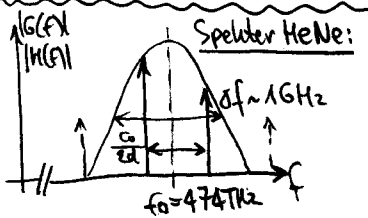 |G(f)|
|H(f)|
Spekter HeNe:
δf~1GHz
c₀
2d
f
f₀=474THz